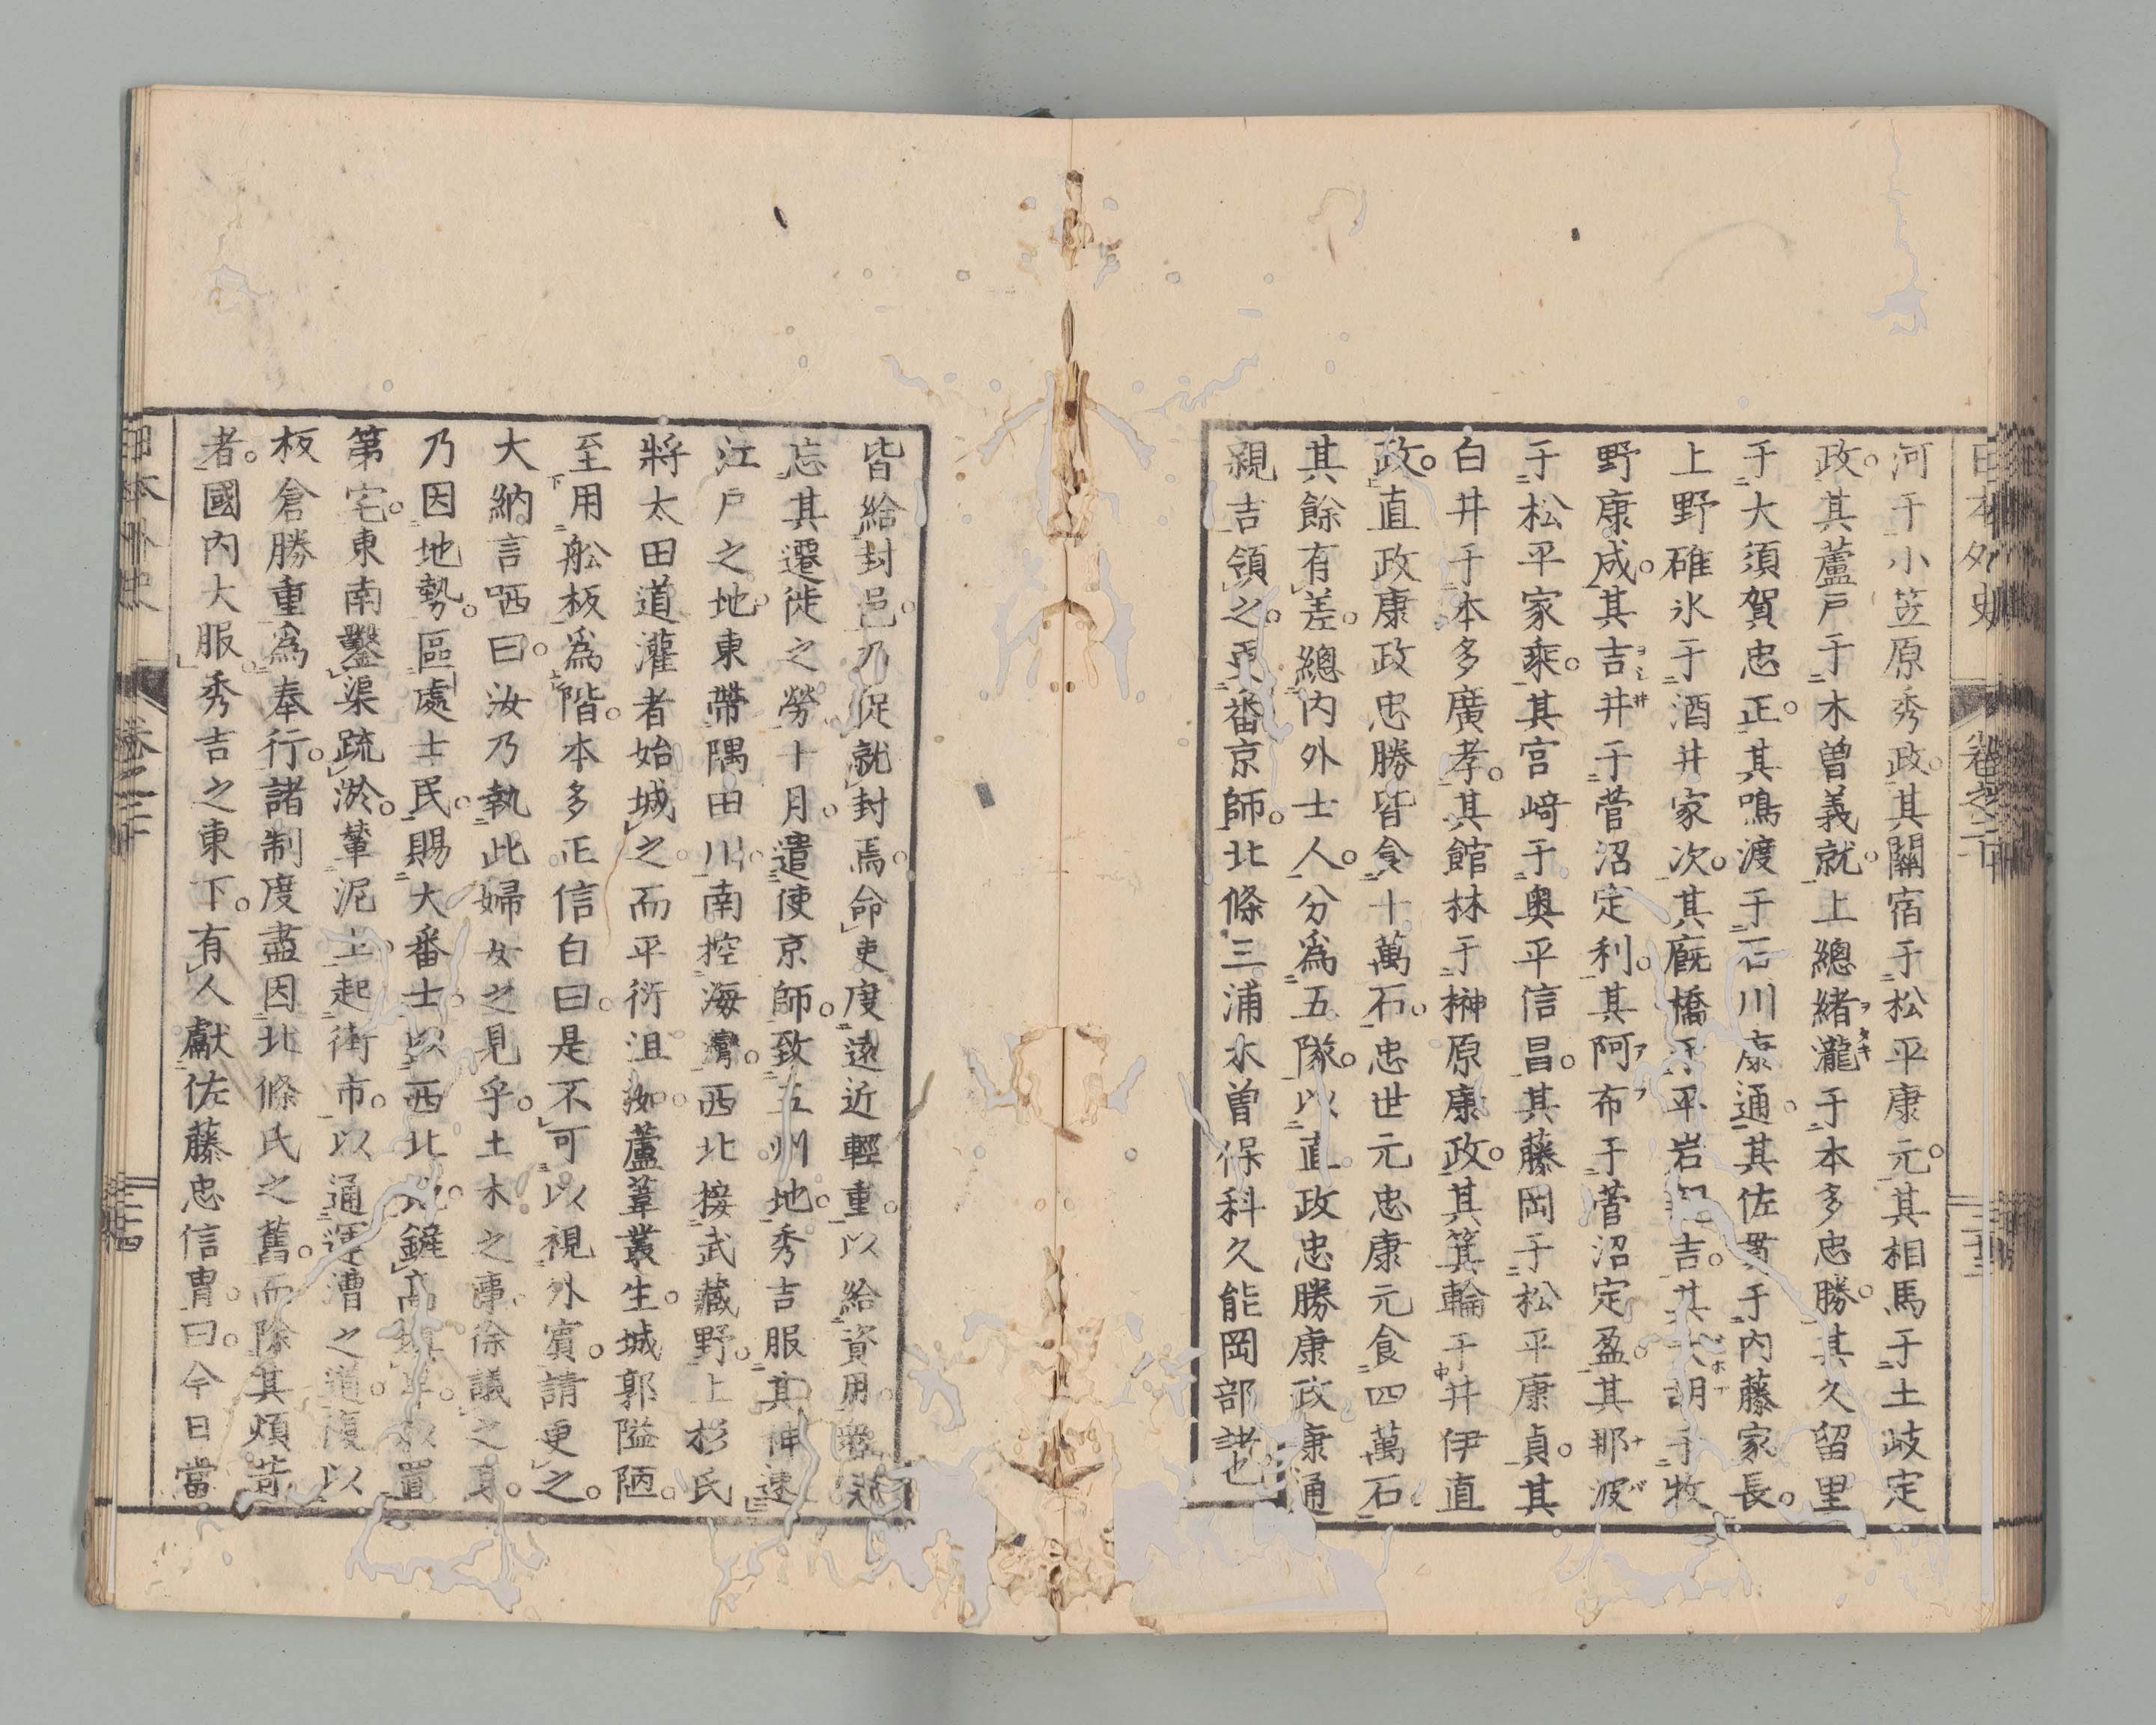 日本外史 卷之二十 二十三
河于小笠原秀政。其關宿于松平康元。其相馬于土岐定
政。其蘆戸于木曽義就。上總緒瀧于本多忠勝。其久留里
于大須賀忠正。其鳴渡于石川康通。其佐貫于内藤家長。
上野碓氷于酒井家次。其廐橋于平岩親吉。其大胡于牧
野康成。其吉井于菅沼定利。其阿布于菅沼定盈。其那波
于松平家乘。其宮﨑于奥平信昌。其藤岡于松平康貞。其
白井于本多廣孝。其館林于榊原康政。其箕輪于井伊直
政。直政康政忠勝皆食十萬石。忠世元忠康元食四萬石。
其餘有差。總内外士人。分爲五隊。以直政忠勝康政康通
親吉領之。更番京師。北條三浦水曽保科久能岡部諸
皆給封邑。乃促就封焉。命吏度遠近輕重。以給資用。衆
忘其遷徙之勞。十月。遣使京師。致五州地。秀吉服其神速
江戸之地。東帶隅田川。南控海灣。西北接武藏野。上杉氏
將太田道灌者始城之。而平衍沮洳。蘆葦叢生。城郭隘陋。
至用舩板爲階。本多正信白曰。是不可以視外賓。請更之。
大納言哂曰。汝乃執此婦女之見乎。土木之事。徐議之耳。
乃因地勢。區處士民。賜大番士以西北地。鏟高填卑。以置
第宅。東南鑿渠疏淤。輦泥土。起街市。以通運漕之道。復以
板倉勝重爲奉行。諸制度盡因北條氏之舊。而除其煩苛
者。國内大服。秀吉之東下。有人獻佐藤忠信冑。曰。今日當
日本外史 卷之二十 二十四